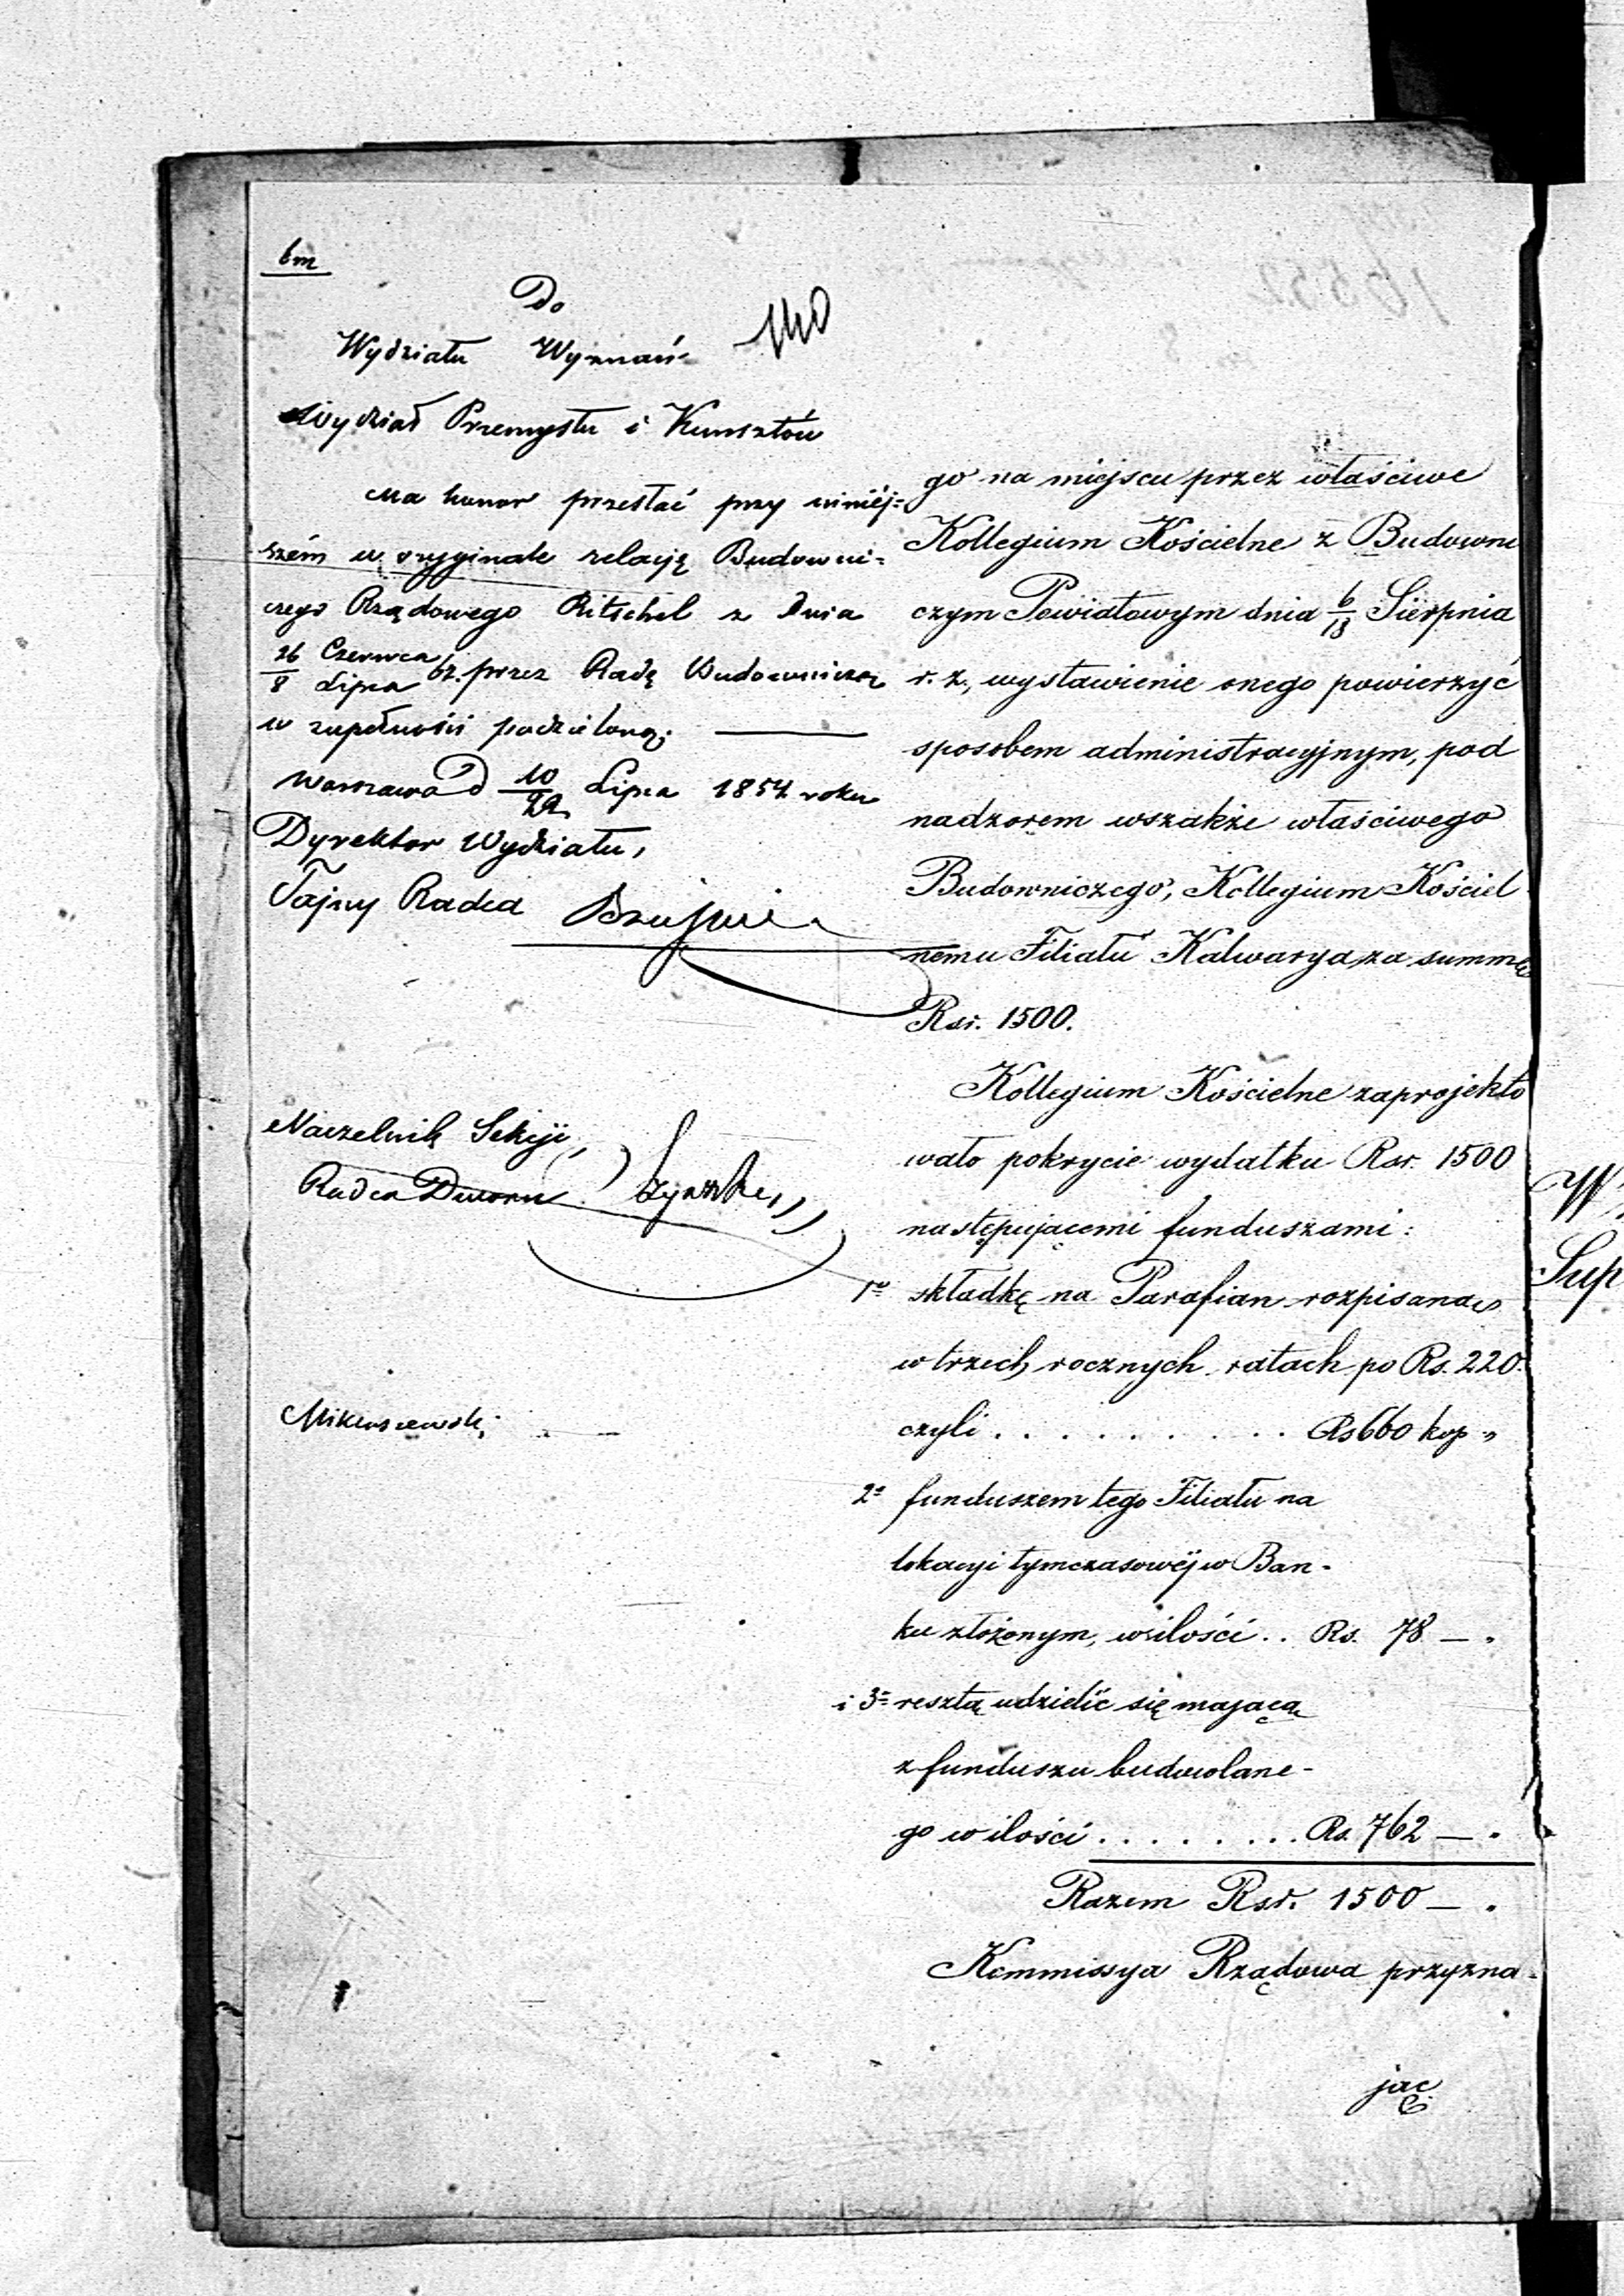 bm
Do
Wydziału Wyznań
140
Wydział Przemysłu i Kunsztów
Ma honor przesłać przy niniéj=
szém w oryginale relacją Budowni=
czego Rządowego Ritschel z Dnia
26/8 Czerwca/Lipca bz. przez Radę Budowniczą
w zupełności podzieloną.
Warszawa d 10/22 Lipca 1854 roku
Dyrektor Wydziału,
Tajny Radca
Naczelnik Sekcji,
Radca Dworu
Mikuszewski
go na miejscu przez właściwe
Kollegium Kościelne z Budowni
czym Powiatowym dnia 6/18 Sierpnia
r. z., wystawienie onego powierzyć
sposobem administracyjnym, pod
nadzorem wszakże właściwego
Budowniczego, Kollegium Kościel
nemu Filiału Kalwarya za summę
Rsr. 1500.
Kollegium Kościelne zaprojekto
wało pokrycie wydatku Rsr. 1500
następującemi funduszami:
1º składką na Parafian rozpisaną
w trzech rocznych ratach po Rs. 220.
czyli . . . . . . . . . . Rs 660 kop "
2º funduszem tego Filiału na
lokacyi tymczasowéj w Ban-
ku złożonym, w ilości . . Rs. 78 — "
i 3º resztą udzielić się mającą
z funduszu budowlane-
go w ilości . . . . . . . . Rs. 762 — "
Razem Rsr. 1500 — "
Kommissya Rządowa przyzna-
jąc
W
Sup